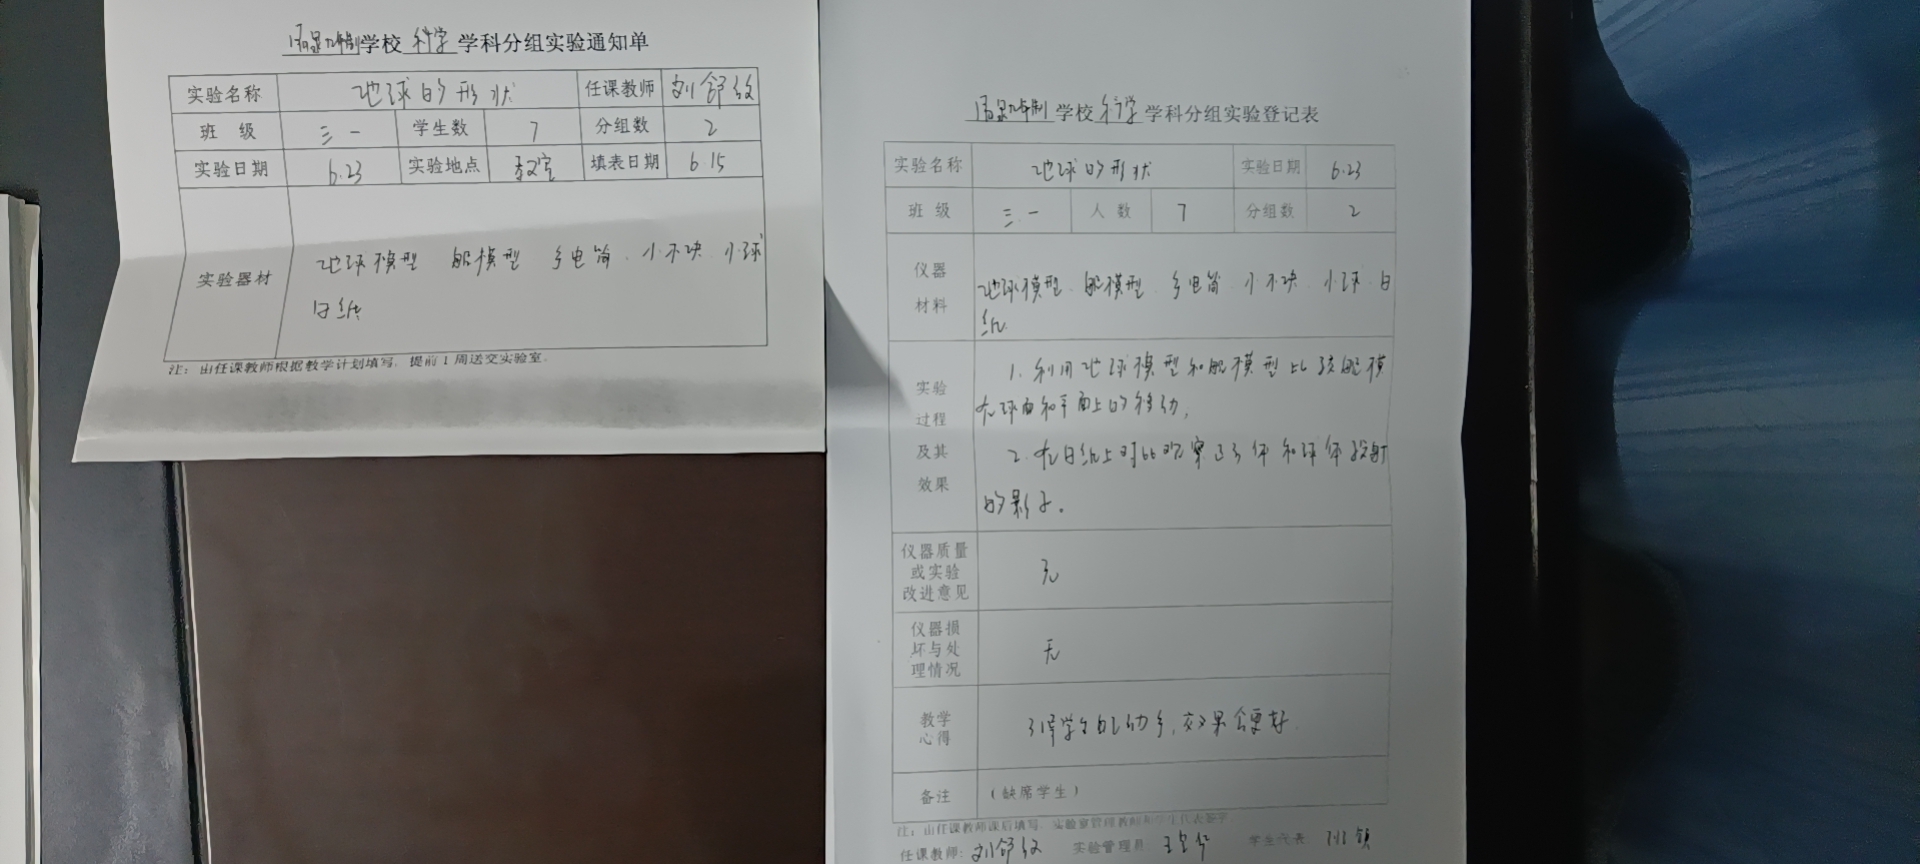 学校 科学 学科分组实验通知单
实验名称 地球的形状 任课教师 刘舒
班 级 三一 学生数 7 分组数 2
实验日期 6.23 实验地点 教室 填表日期 6.15
实验器材
地球模型 船模型 手电筒、小木块、小球
白纸
注：由任课教师根据教学计划填写，提前1周送交实验室。
学校 科学 学科分组实验登记表
实验名称 地球的形状 实验日期 6.23
班 级 三一 人 数 7 分组数 2
仪器
材料
地球模型、船模型、手电筒、小木块、小球、白
纸
实验
过程
及其
效果
1.利用地球模型和船模型比较船模
在球面和平面上的移动，
2.在白纸上对比观察 体和球体投射
的影子。
仪器质量
或实验
改进意见
无
仪器损
坏与处
理情况
无
教学
心得
引导学生自己动手，效果会更好
备注 （缺席学生）
注：由任课教师课后填写，实验室管理教师和学生代表签字
任课教师：刘舒 实验管理员 王 学生代表